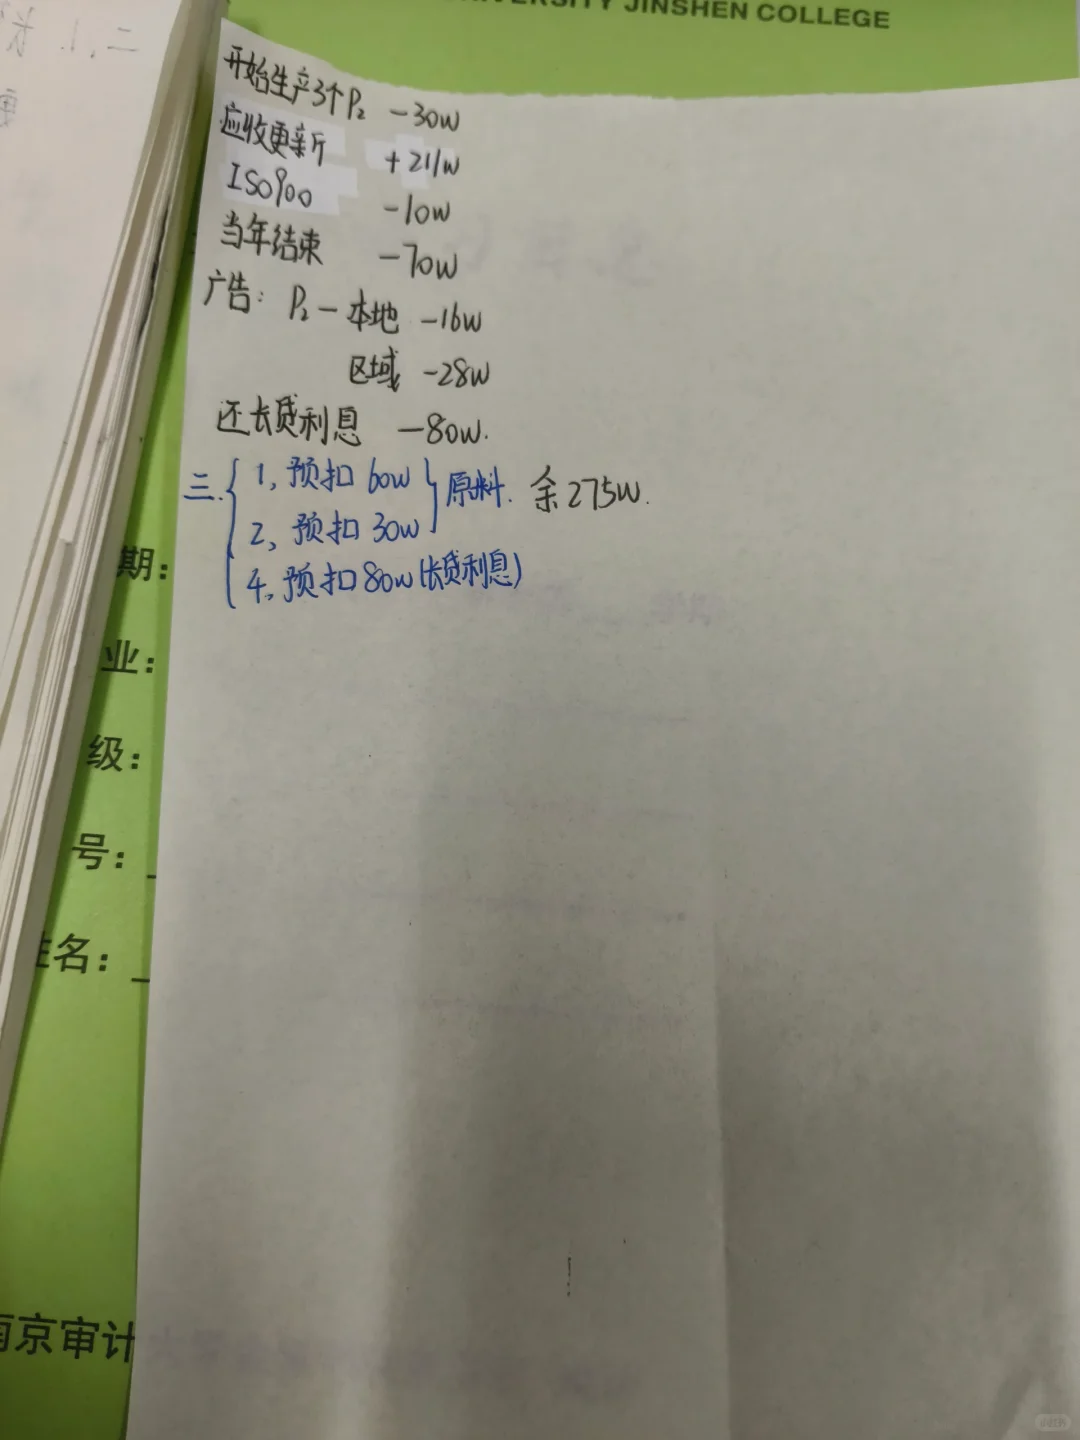 UNIVERSITY JINSHEN COLLEGE
二、1.
开始生产3个P₂ -30W
应收更新 +211W
ISO900 -10W
当年结束 -70W
广告: P₂-本地 -16W
区域 -28W
还长贷利息 -80W.
三. 1, 预扣60W
2, 预扣30W 原料. 余275W.
4, 预扣80W(长贷利息)
期:
业:
级:
号:
姓名:
南京审计